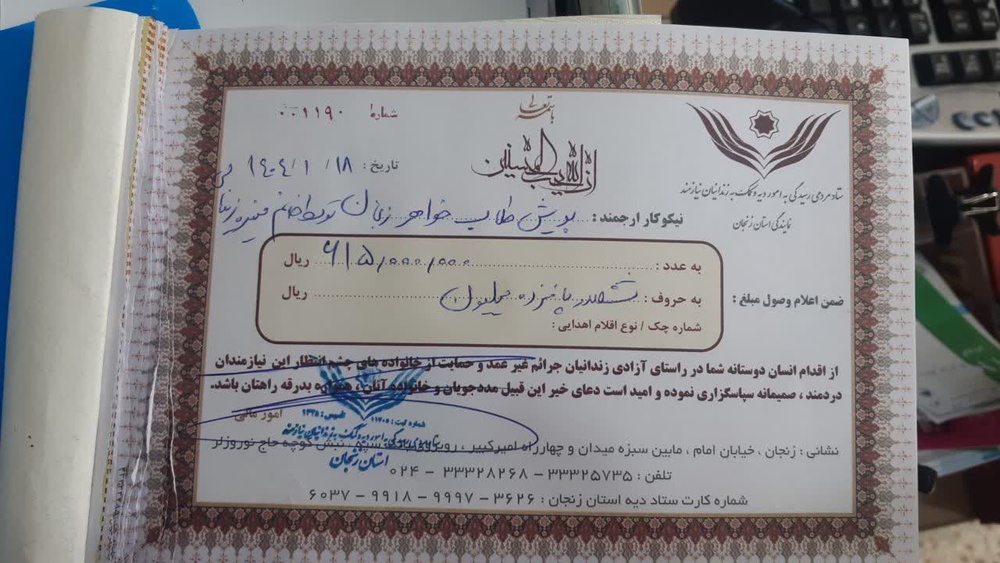 باسمه تعالی
ان الله یحب المحسنین
ستاد مردمی رسیدگی به امور دیه و کمک به زندانیان نیازمند
نمایندگی استان زنجان
شماره: ۰۰۱۱۹۰
تاریخ: ۱۴۰۴/۱/۱۸
نیکوکار ارجمند: پویش طلایی خواهر زنجان توسط خانم
ضمن اعلام وصول مبلغ:
به عدد: ۶۱۵/۰۰۰/۰۰۰ ریال
به حروف: ششصد و پانزده میلیون ریال
شماره چک / نوع اقلام اهدایی:
از اقدام انسان دوستانه شما در راستای آزادی زندانیان جرائم غیر عمد و حمایت از خانواده های چشم انتظار این نیازمندان
دردمند، صمیمانه سپاسگزاری نموده و امید است دعای خیر این قبیل مددجویان و خانواده آنان، همواره بدرقه راهتان باشد.
امور مالی
ستاد مردمی رسیدگی به امور دیه و کمک به زندانیان نیازمند
استان زنجان
نشانی: زنجان، خیابان امام، مابین سبزه میدان و چهارراه امیرکبیر، روبروی نبش کوچه حاج نوروزلر
تلفن: ۳۳۳۲۵۷۳۵ - ۳۳۳۲۸۲۶۸ - ۰۲۴
شماره کارت ستاد دیه استان زنجان: ۳۶۲۶ - ۹۹۹۷ - ۹۹۱۸ - ۶۰۳۷